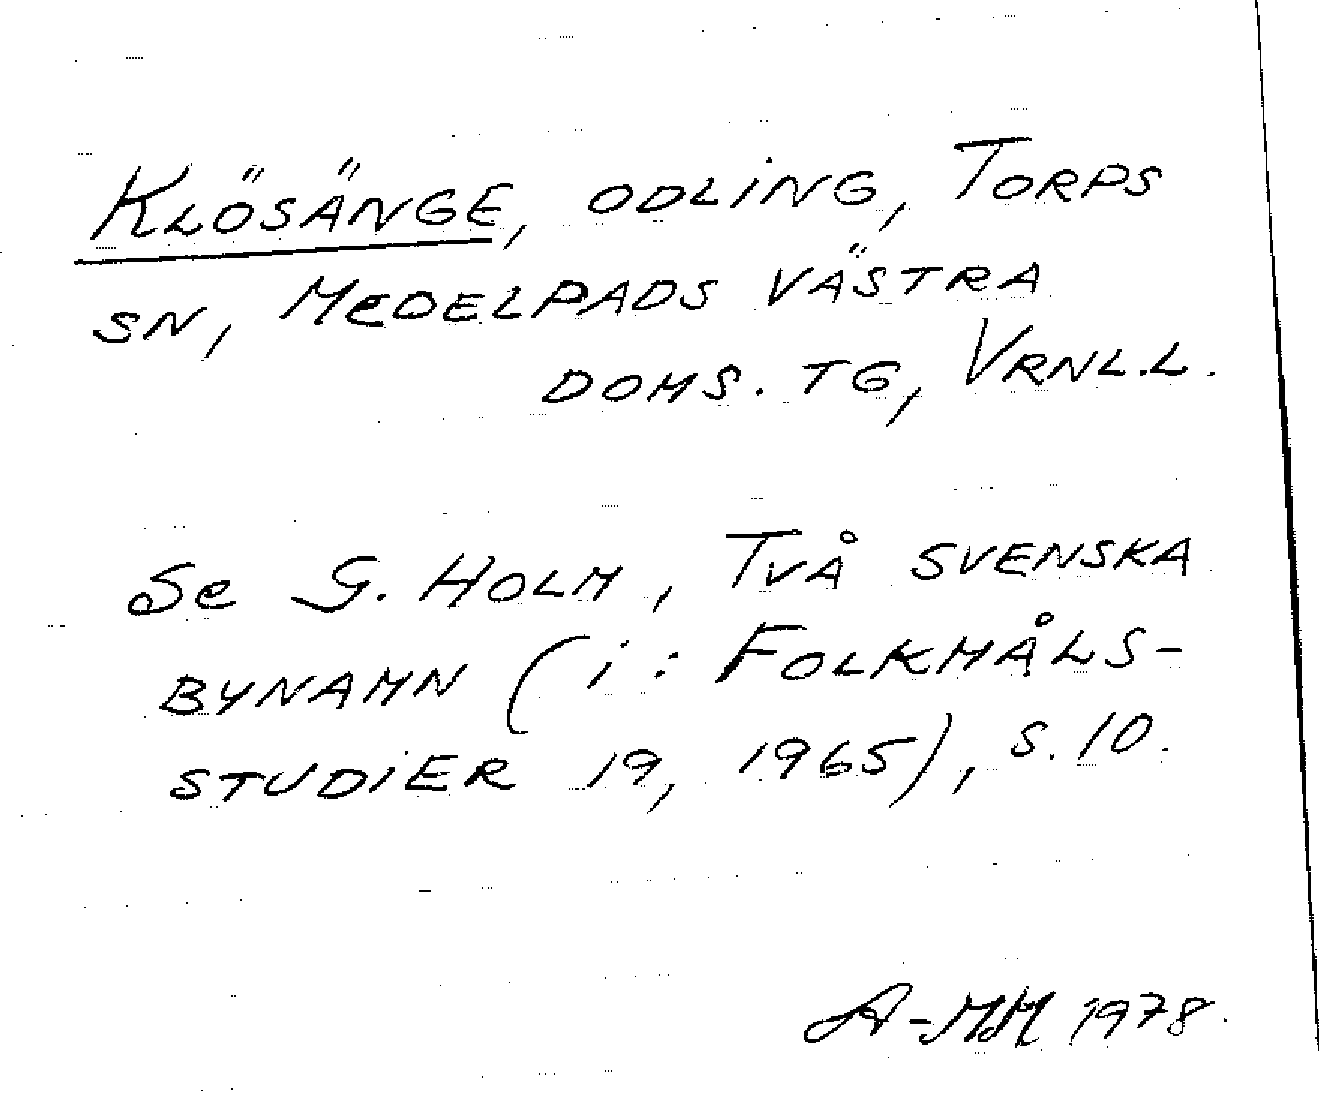 KLÖSÄNGE, ODLING, TORPS
SN, MEDELPADS VÄSTRA
DOMS. TG, VRNL.L.
Se G. HOLM, TVÅ SVENSKA
BYNAMN (i: FOLKMÅLS-
STUDIER 19, 1965), S. 10.
A-MM 1978.